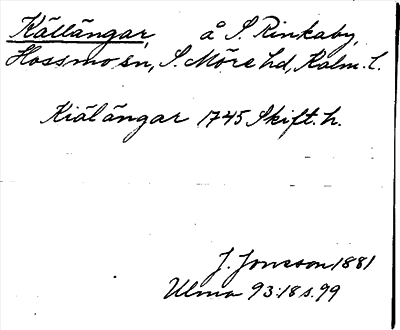 Källängar, å S. Rinkaby,
Hossmo sn, S. Möre hd, Kalm. l.
Kiälängar 1745 Skift. h.
J. Jonsson 1881
Ulma 93:18 s. 99